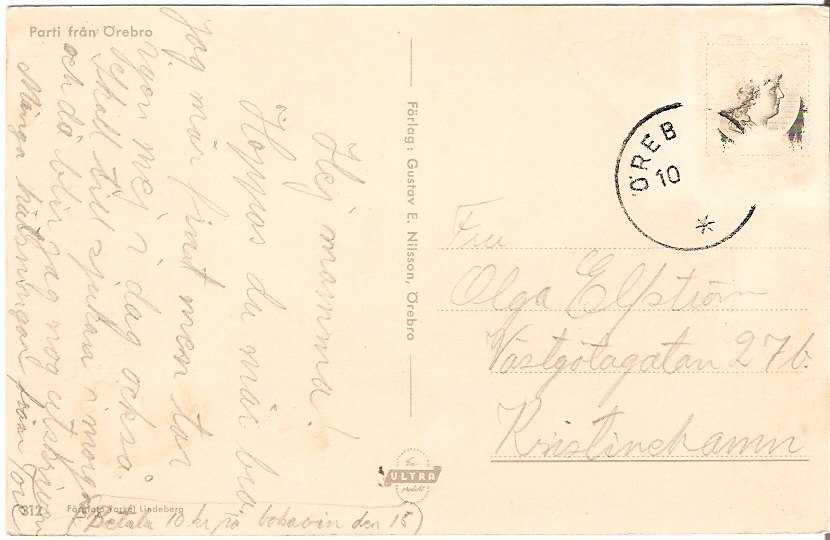 Parti från Örebro
Hej mamma!
Hoppas du mår bra.
Jag mår fint men tar
nyp i mej i dag också.
Skall till sjukan i morgon
och då blir jag nog utskriven
Många hälsningar från Tore
(Betala 10 kr på bokavin den 15)
312 Färgfoto Torkel Lindeberg
Förlag: Gustav E. Nilsson, Örebro
En
ULTRA
produkt
ÖREB
10
Fru
Olga Elfström
Västgötagatan 27b.
Kristinehamn